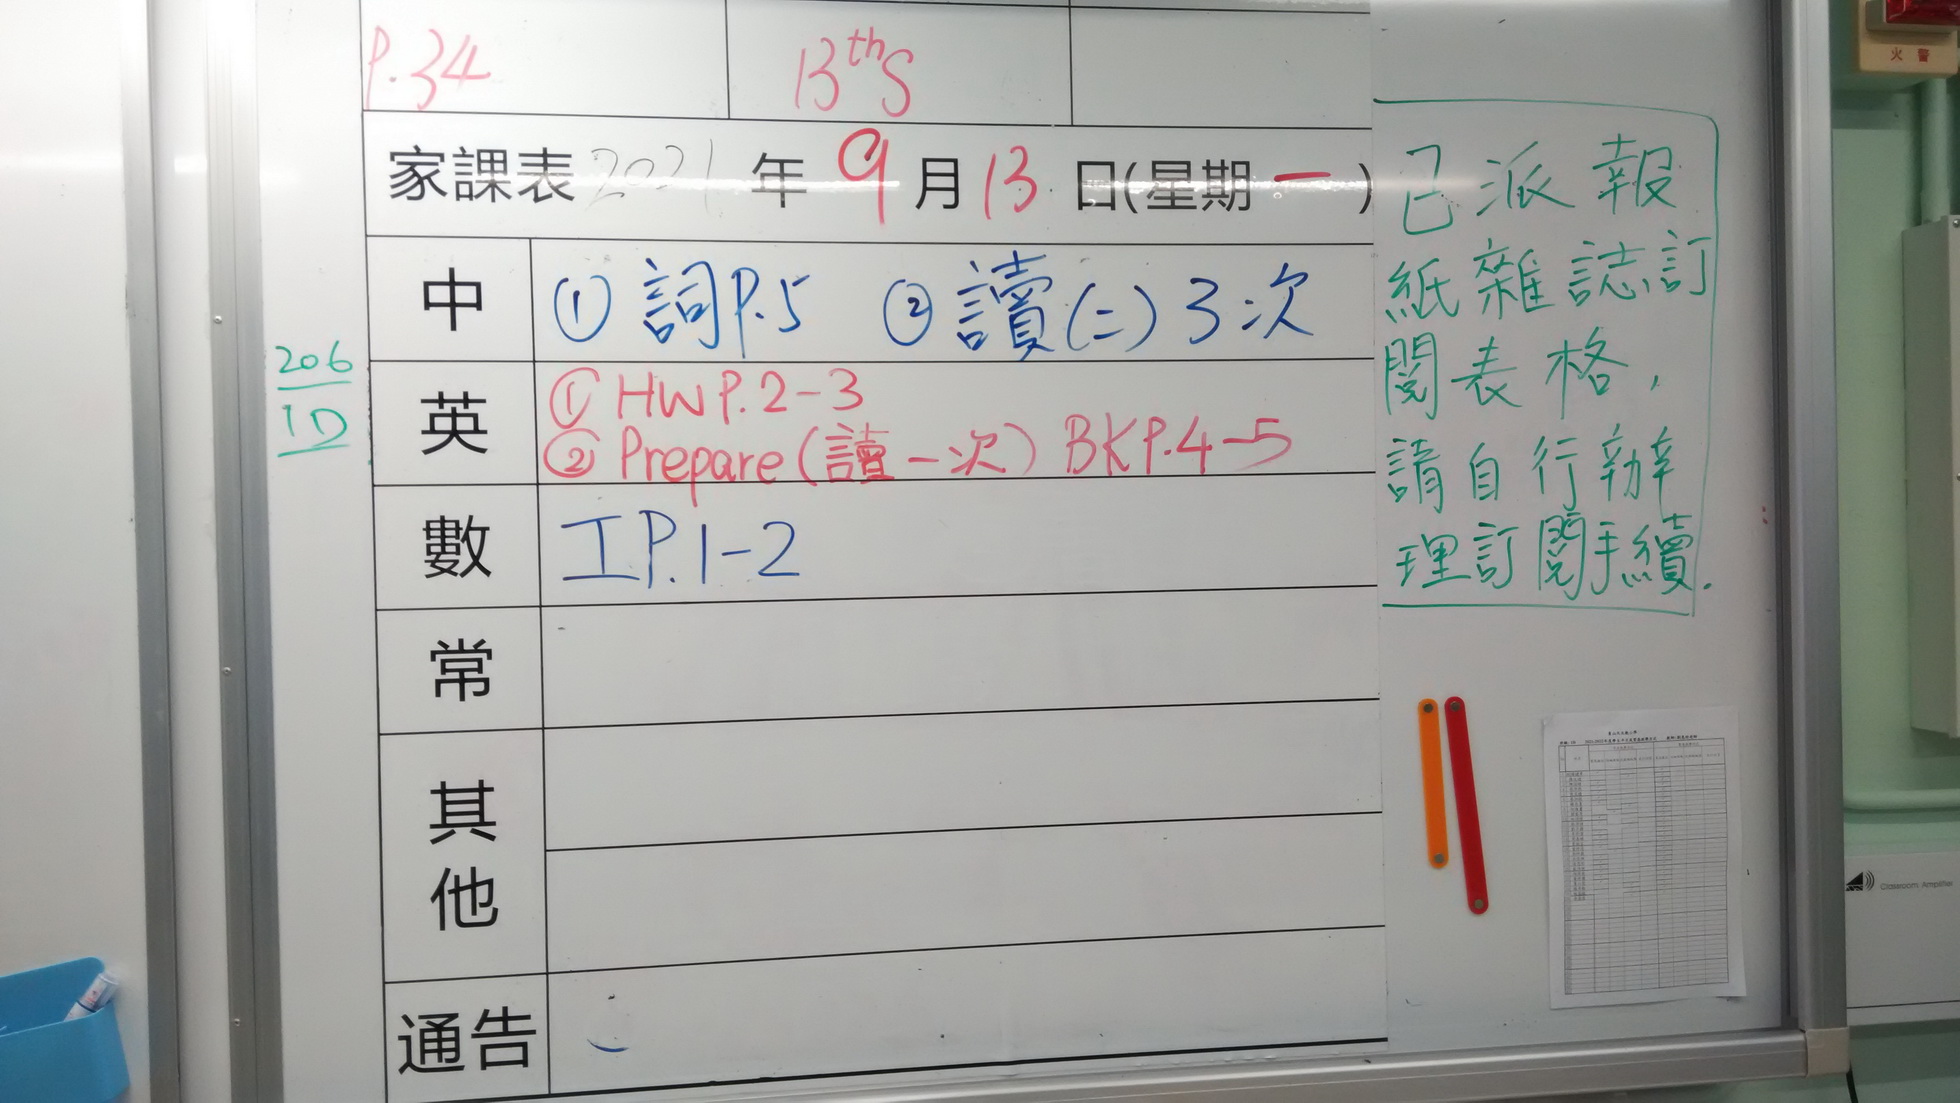 P.34
13thS
火警
家課表 2021 年 9 月 13 日(星期 一 )
中 ① 詞P.5 ② 讀(二) 3次
206
1D
英 ① HW P.2-3
② Prepare (讀一次) BK P.4-5
數 工P.1-2
常
其他
通告
已派報
紙雜誌訂
閱表格,
請自行辦
理訂閱手續.
Classroom Amplifier